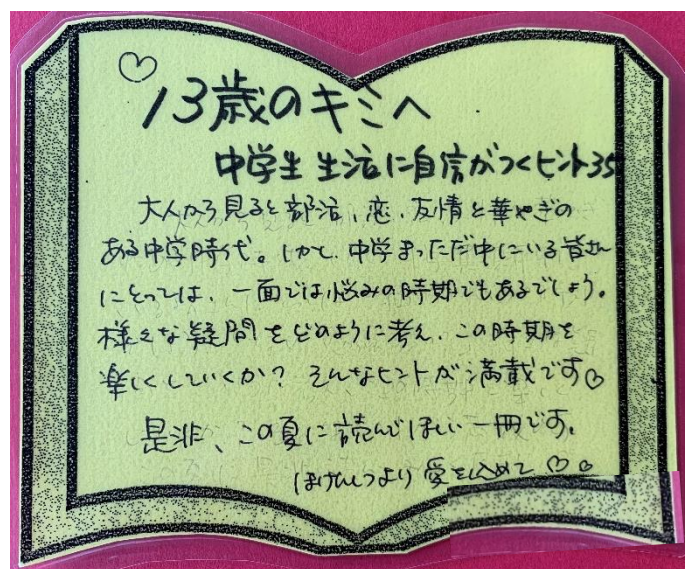 ♡
13歳のキミへ
中学生生活に自信がつくヒント35
大人から見ると部活、恋、友情と華やぎの
ある中学時代。しかし、中学まっただ中にいる皆さん
にとっては、一面では悩みの時期でもあるでしょう。
様々な疑問をどのように考え、この時期を
楽しくしていくか？そんなヒントが満載です♡
是非、この夏に読んでほしい一冊です。
ほけんしつより愛を込めて♡♡